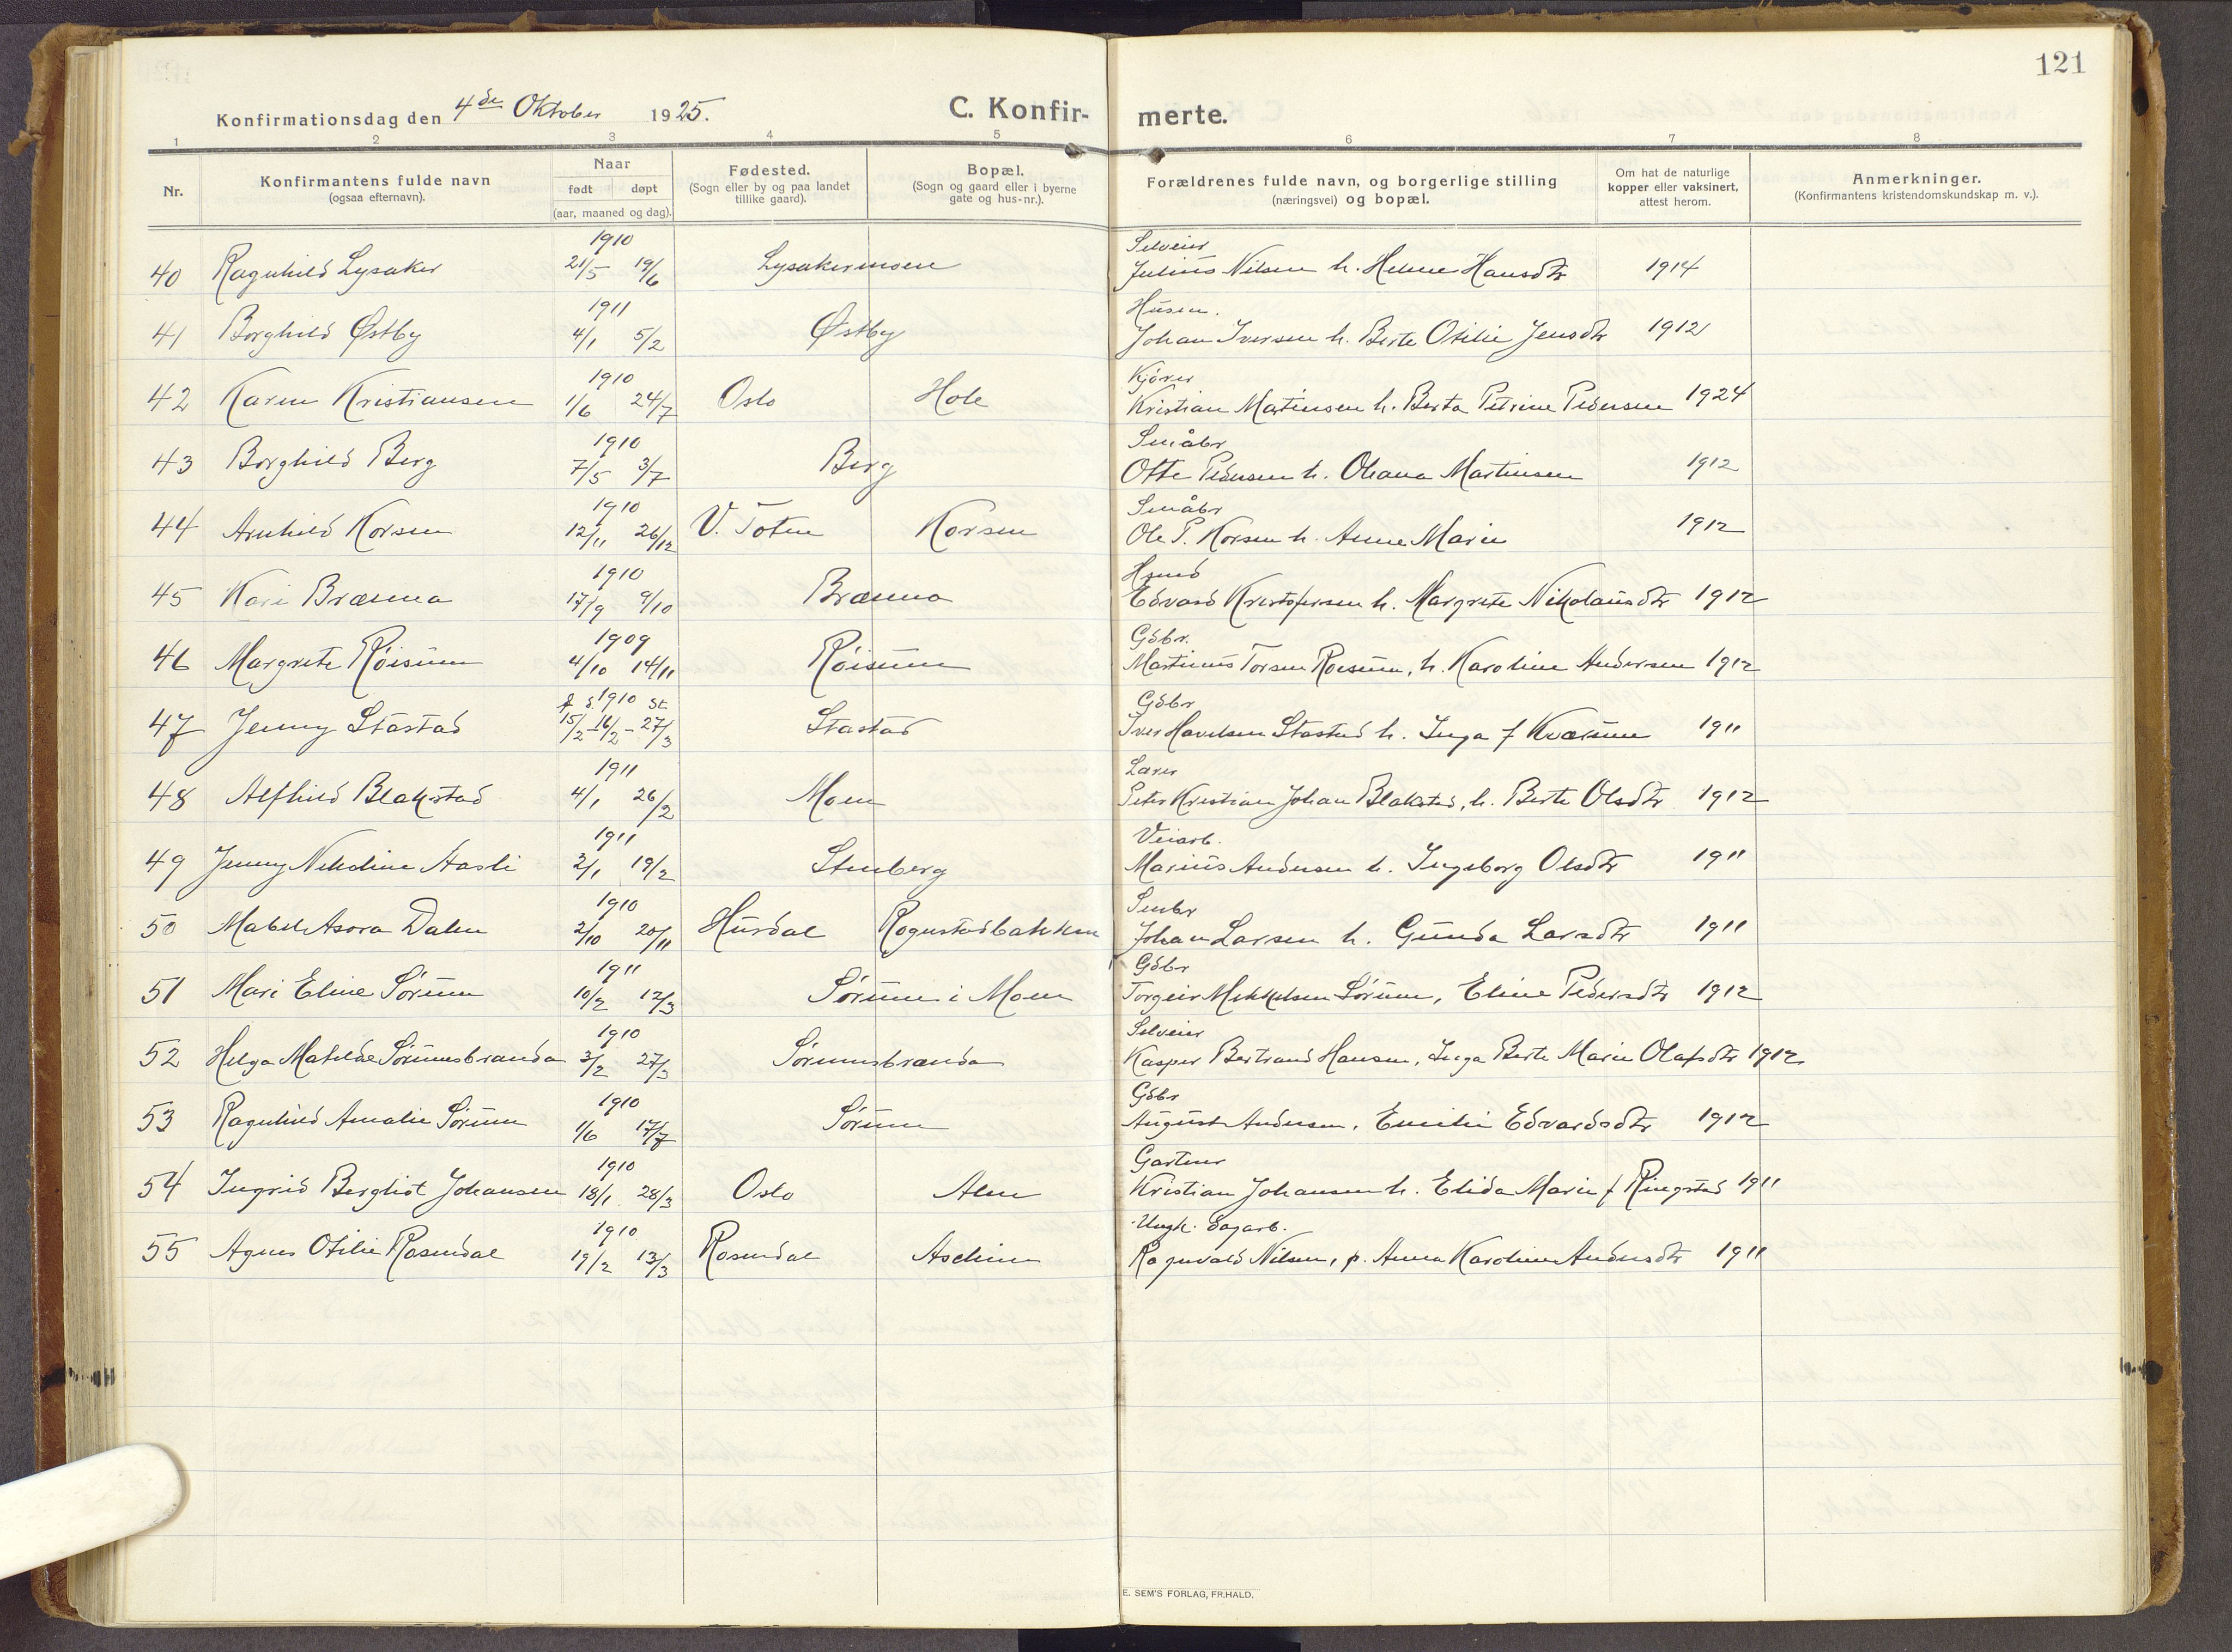 121
Konfirmationsdag den 4de Oktober 1925.
C. Konfir-
merte.
1 2 3 4 5 6 7 8
Nr.
Konfirmantens fulde navn
(ogsaa efternavn).
Naar
født døpt
(aar, maaned og dag).
Fødested.
(Sogn eller by og paa landet
tillike gaard).
Bopæl.
(Sogn og gaard eller i byerne
gate og hus-nr.).
Forældrenes fulde navn, og borgerlige stilling
(næringsvei) og bopæl.
Om hat de naturlige
kopper eller vaksinert,
attest herom.
Anmerkninger.
(Konfirmantens kristendomskundskap m. v.).
1910 Selveier
40 Ragnhild Lysaker 21/5 19/6 Lysakermoen Julius Nilsen h. Helene Hansdtr 1914
1911 Husm.
41 Borghild Østby 4/1 5/2 Østby Johan Iversen h. Berte Otilie Jensdtr 1912
1910 Kjører
42 Karen Kristiansen 1/6 24/7 Oslo Hole Kristian Martinsen h. Berta Petrine Pedersen 1924
1910 Småbr
43 Borghild Berg 7/5 3/7 Berg Otto Pedersen h. Oleana Martinsen 1912
1910 Småbr
44 Arnhild Korsen 12/11 26/12 V. Toten Korsen Ole P. Korsen h. Anne Marie 1912
1910 Hsmd
45 Kari Brænna 17/9 9/10 Brænna Edvard Kristofersen h. Margrete Nikolausdtr 1912
1909 Gdbr.
46 Margrete Røisum 4/10 14/11 Røisum Martinus Torsen Røisum, h. Karoline Andersen 1912
f d. 1910 st. Gdbr
47 Jenny Stastad 15/2 - 16/2 - 27/3 Stastad Iver Havelsen Stastad h. Inga f Kværum 1911
1911 Lærer
48 Alfhild Blakstad 4/1 26/2 Moen Peter Kristian Johan Blakstad, h. Berte Olsdtr 1912
1911 Veiarb.
49 Jenny Nikoline Aasli 2/1 19/2 Stenberg Marius Andersen h. Ingeborg Olsdtr 1911
1910 Smbr
50 Mabel Asora Dalen 2/10 20/11 Hurdal Rognstadbakken Johan Larsen h. Gunda Larsdtr 1911
1911 Gdbr
51 Mari Eline Sørum 10/2 12/3 Sørum i Moen Torgeir Mikkelsen Sørum, Eline Pedersdtr 1912
1910 Selveier
52 Helga Matilde Sørumsbranda 3/2 27/3 Sørumsbranda Kasper Bertrand Hansen, Inga Berte Marie Olafsdtr 1912
1910 Gdbr
53 Ragnhild Amalie Sørum 1/6 17/7 Sørum August Andersen, Emilie Edvardsdtr 1912
1910 Gartner
54 Ingrid Bergliot Johansen 18/1 28/3 Oslo Alm Kristian Johansen h. Elida Marie f Ringstad 1911
1910 Ungk. Sagarb.
55 Agnes Otilie Rosendal 19/2 13/3 Rosendal Aschim Ragnvald Nilsen, p. Anna Karoline Andersdtr 1911
E. SEM'S FORLAG, FR.HALD.